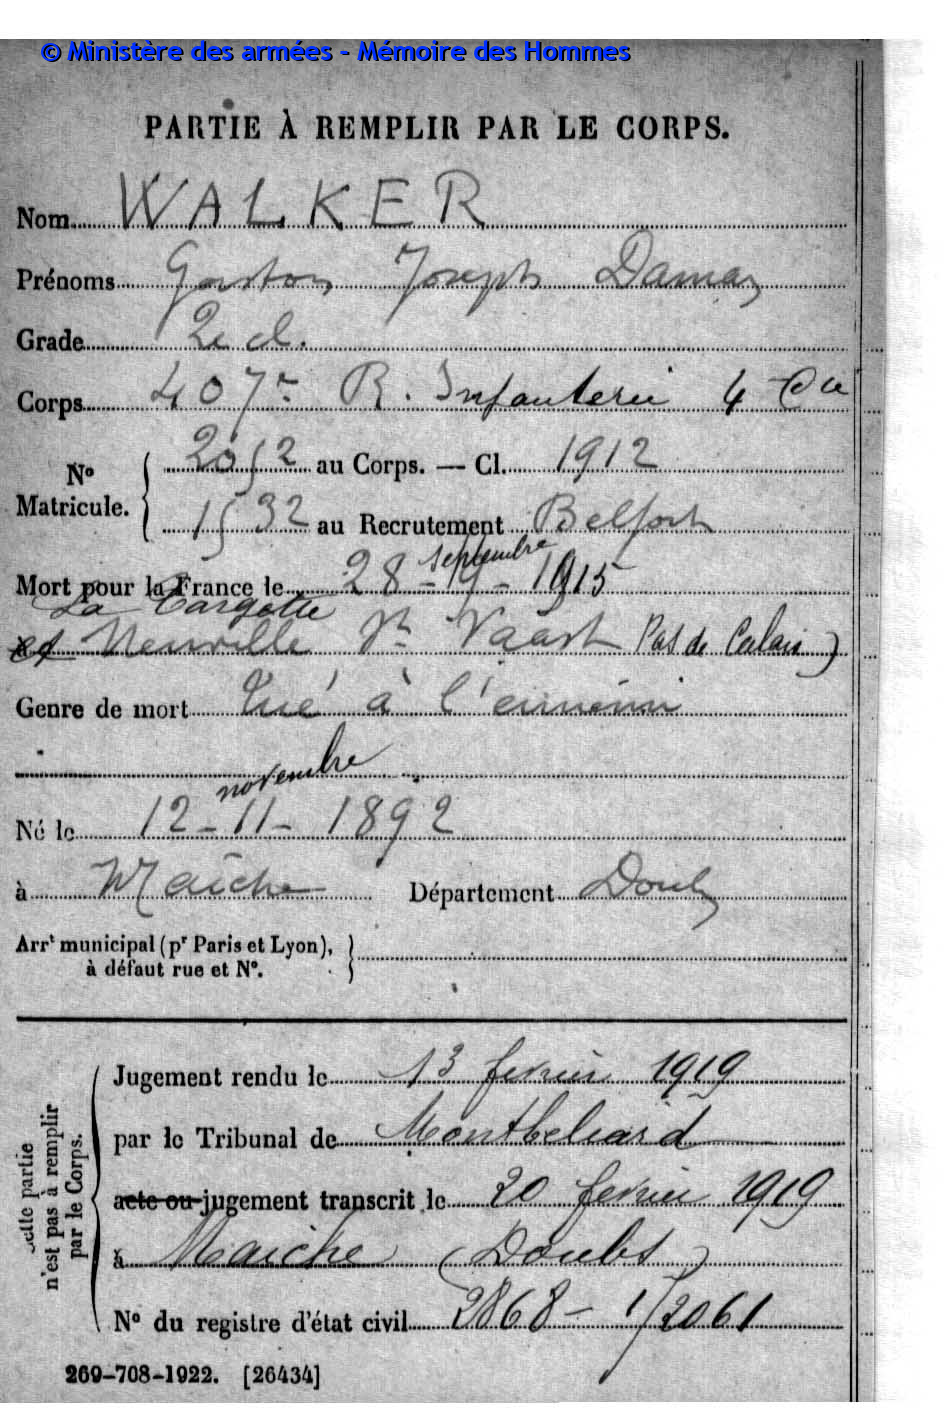 © Ministère des armées - Mémoire des Hommes
PARTIE À REMPLIR PAR LE CORPS.
Nom WALKER
Prénoms Gaston Joseph Damas
Grade 2e cl.
Corps 407e R. Infanterie 4 Cie
No Matricule. 2052 au Corps. — Cl. 1912
1532 au Recrutement Belfort
septembre
Mort pour la France le 28-9-1915
La Targette
et Neuville St Vaast Pas de Calais)
Genre de mort Tué à l'ennemi
novembre
Né le 12-11-1892
à Maîche Département Doubs
Arrt municipal (pr Paris et Lyon),
à défaut rue et No.
Cette partie
n'est pas à remplir
par le Corps.
Jugement rendu le 13 fevrier 1919
par le Tribunal de Montbeliard
acte ou jugement transcrit le 20 fevrier 1919
à Maiche (Doubs)
No du registre d'état civil 2868-1/2061
269-708-1922. [26434]